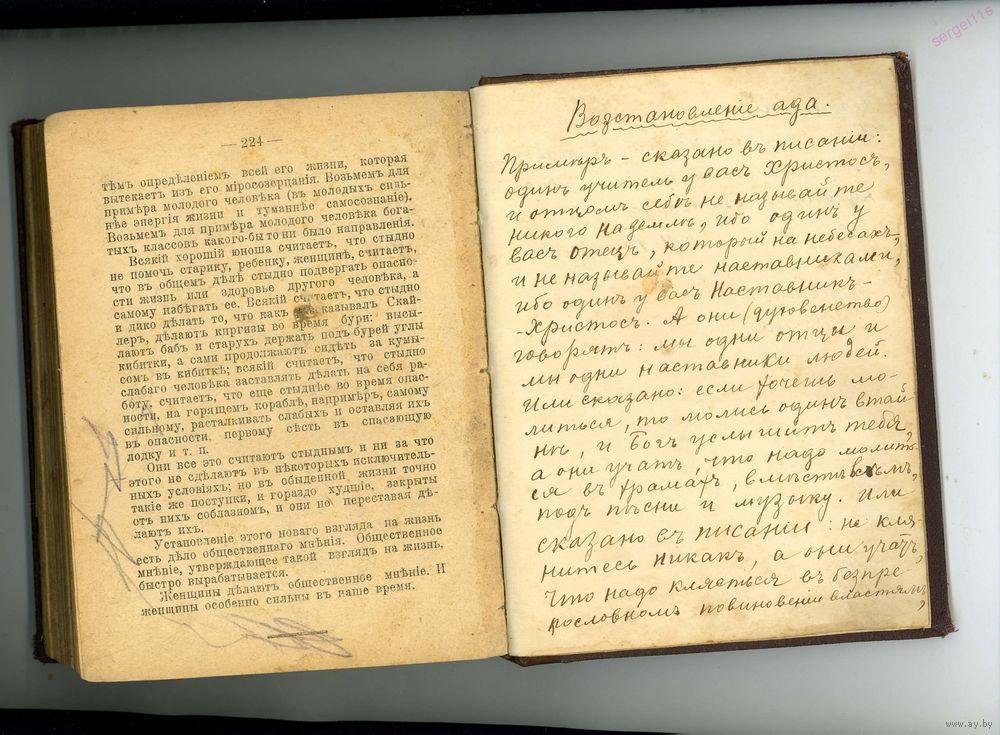 — 224 —
тѣмъ опредѣленіемъ всей его жизни, которая
вытекаетъ изъ его міросозерцанія. Возьмемъ для
примѣра молодого человѣка (въ молодыхъ силь-
нѣе энергія жизни и туманнѣе самосознаніе).
Возьмемъ для примѣра молодого человѣка бога-
тыхъ классовъ какого-бы то ни было направленія.
Всякій хорошій юноша считаетъ, что стыдно
не помочь старику, ребенку, женщинѣ, считаетъ,
что въ общемъ дѣлѣ стыдно подвергать опасно-
сти жизнь или здоровье другого человѣка, а
самому избѣгать ее. Всякій считаетъ, что стыдно
и дико дѣлать то, что какъ разсказывалъ Скай-
леръ, дѣлаютъ киргизы во время бури: высы-
лаютъ бабъ и старухъ держать подъ бурей углы
кибитки, а сами продолжаютъ сидѣть за кумы-
сомъ въ кибиткѣ; всякій считаетъ, что стыдно
слабаго человѣка заставлять дѣлать на себя ра-
боту, считаетъ, что еще стыднѣе во время опас-
ности, на горящемъ кораблѣ, напримѣръ, самому
сильному, расталкивать слабыхъ и оставляя ихъ
въ опасности, первому сѣсть въ спасающую
лодку и т. п.
Они все это считаютъ стыднымъ и ни за что
этого не сдѣлаютъ въ нѣкоторыхъ исключитель-
ныхъ условіяхъ; но въ обыденной жизни точно
такіе же поступки, и гораздо худшіе, закрыты
отъ нихъ соблазномъ, и они не переставая дѣ-
лаютъ ихъ.
Установленіе этого новаго взгляда на жизнь
есть дѣло общественнаго мнѣнія. Общественное
мнѣніе, утверждающее такой взглядъ на жизнь,
быстро вырабатывается.
Женщины дѣлаютъ общественное мнѣніе. И
женщины особенно сильны въ наше время.
Возстановленіе ада.
Примѣръ – сказано въ писаніи:
одинъ учитель у васъ Христосъ,
и отцомъ себѣ не называйте
никого на землѣ, ибо одинъ у
васъ Отецъ, который на небесахъ,
и не называйте наставниками,
ибо одинъ у васъ Наставникъ –
Христосъ. А они (духовенство)
говорятъ: мы одни отцы и
мы одни наставники людей.
Или сказано: если хочешь мо-
литься, то молись одинъ втай-
нѣ, и Богъ услышитъ тебя,
а они учатъ, что надо молить-
ся въ храмахъ, вмѣстѣ всѣмъ,
подъ пѣсни и музыку. Или
сказано въ писаніи: не кля-
нитесь никакъ, а они учатъ,
что надо клясться въ безпре-
рословномъ повиновеніи властямъ,
sergei11s
www.ay.by